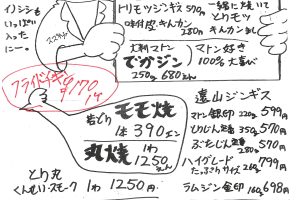 イノシシも
いっぱい
入った
にー。
スズキヤ
トリモツジンギス 570円
味付皮・キンカン
280円 キンカンなし
一緒に焼いて
とりモツ
大判マトン
でカジン
250g 680えん
マトン好き
100%大喜び
フライドチキン
170
若どり
モモ焼
1本 390エン
丸焼
1わ
1250えん
遠山ジンギス
マトン銀印 220g 599円
ひつじん 350g 570円
ぶたじん 570円
ハイグレード
たっぷりサイズ 260g 799円
ラムジン金印 160g 698円
とり丸
くんせい・スモーク 1わ 1250円